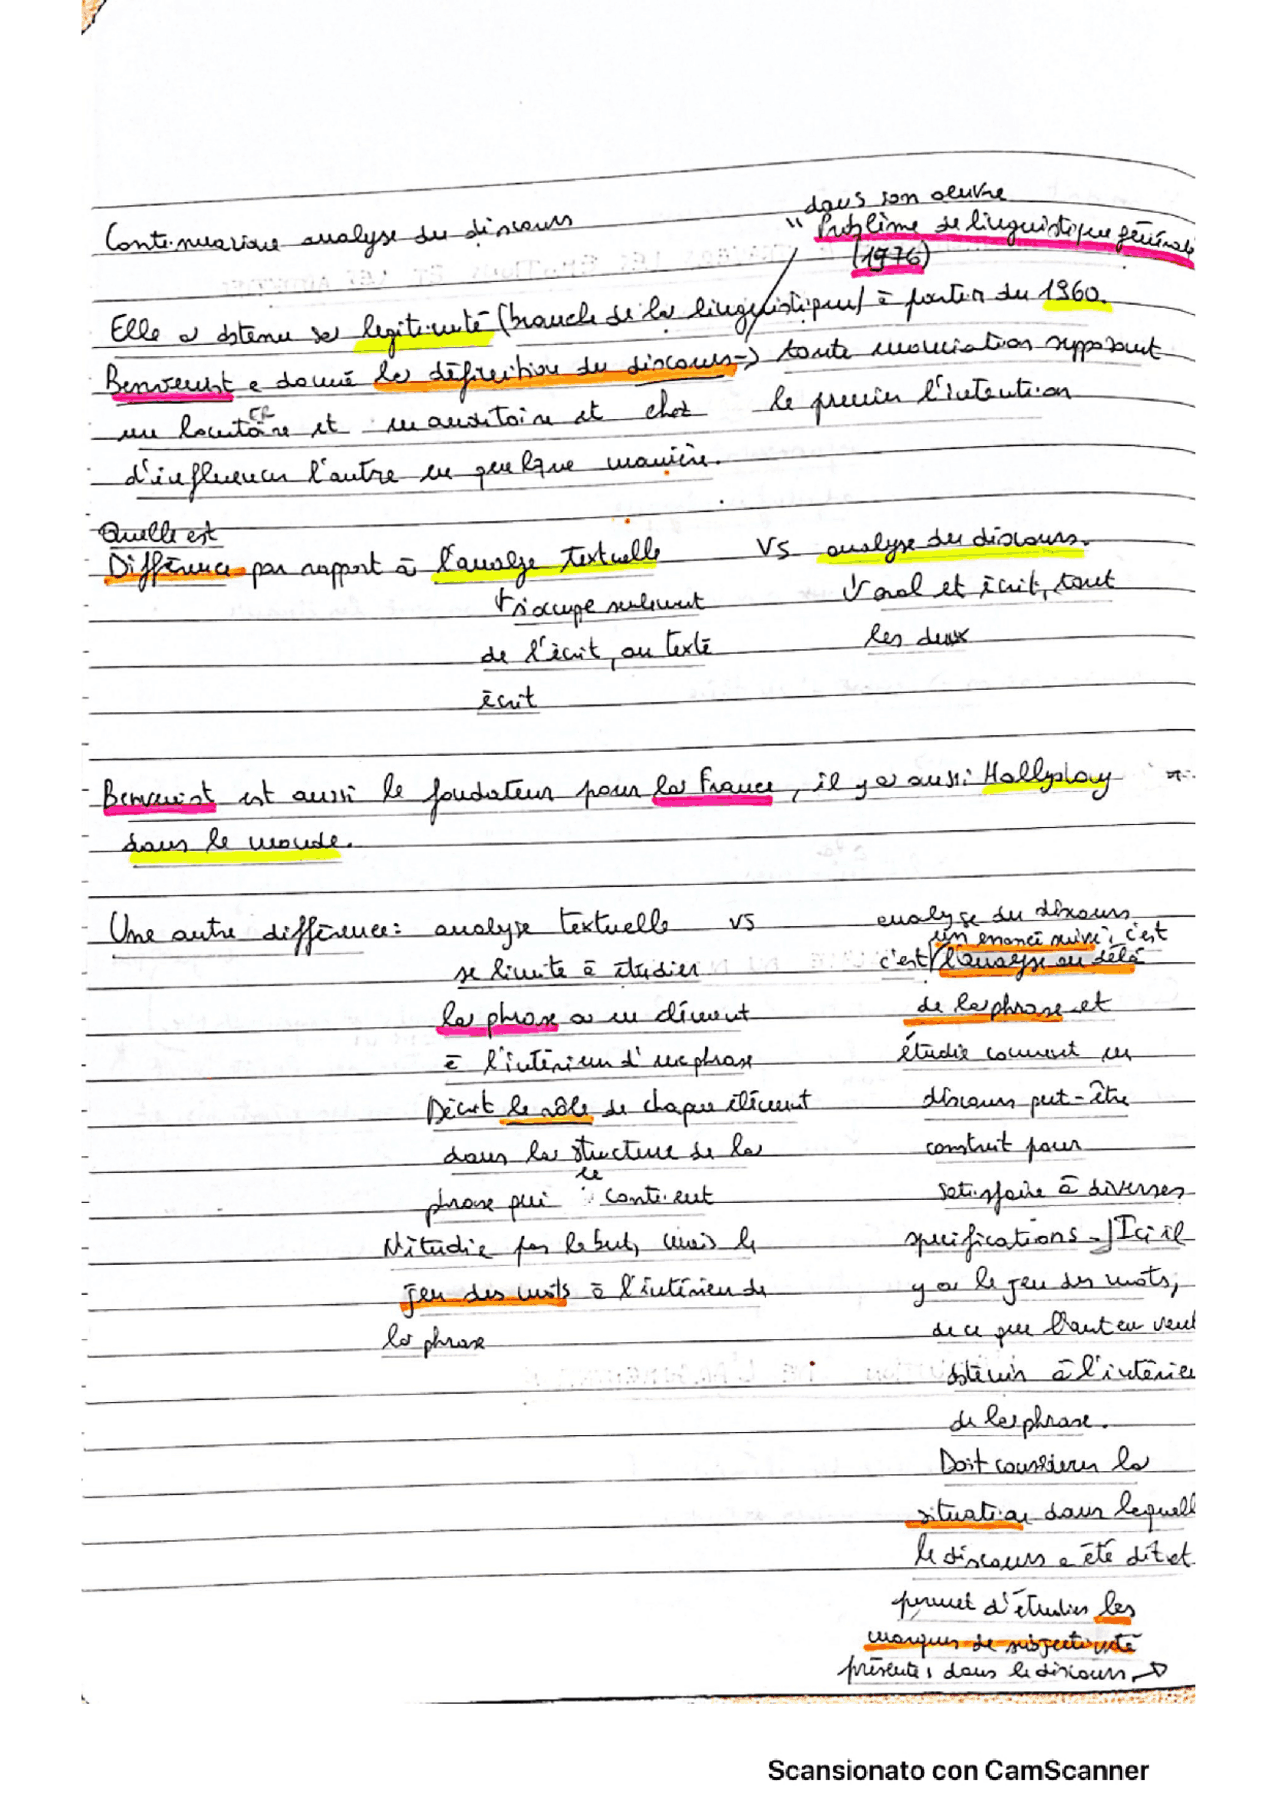 dans son oeuvre
Continuazione analyse du discours
" Problème de linguistique générale
(1976)
Elle a obtenu sa legitimité (branche de la linguistique) à partir du 1960.
Benvenist a donné la définition du discours → toute enonciation supposant
un locutaire et un auditoire et chez le premier l'intention
eur
d'influencer l'autre en quelque manière.
Quelle est
Différence par rapport à l'analyse textuelle VS analyse du discours.
s'occupe seulement
oral et écrit, tout
de l'écrit, au texte
les deux
écrit
Benvenist est aussi le fondateur pour la France, il y a aussi Hallyday
dans le monde.
Une autre différence: analyse textuelle vs analyse du discours
se limite à étudier
la phrase o un élément
à l'intérieur d'une phrase
Décrit le rôle de chaque élément
dans la structure de la
le
phrase qui contient
N'étudie pas le but, mais le
jeu des mots à l'intérieur de
la phrase
un enoncé suivi, c'est
c'est l'analyse au délà
de la phrase et
étudie comment un
discours peut-être
construit pour
satisfaire à diverses
spécifications. Ici il
y a le jeu des mots,
de ce que l'auteur veut
obtenir à l'intérieu
de la phrase.
Doit considerer la
situation dans lequell
le discours a été dit et
permet d'étudier les
marques de subjectivité
présentes dans le discours →
Scansionato con CamScanner